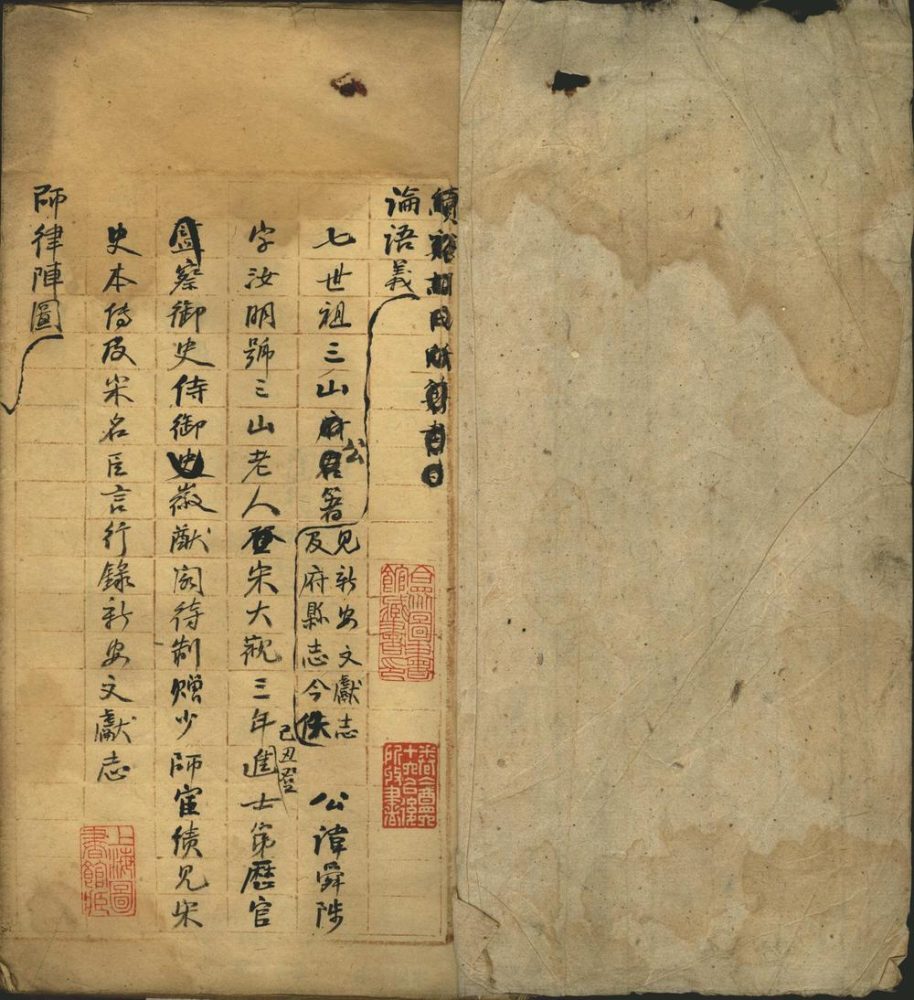 績谿胡氏所著書目
論語義
七世祖三山府君公著見新安文獻志及府縣志今佚　公諱舜陟
字汝明號三山老人登宋大觀三年己丑登進士第歷官
監察御史侍御史徽猷閣待制贈少師宦績見宋
史本傳及宋名臣言行錄新安文獻志
師律陣圖
合眾圖書館藏書印
上海圖書館藏